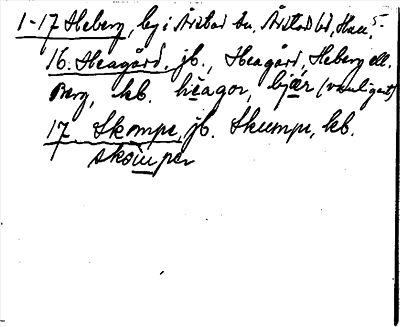 1-17 Heberg, by i Årstad sn. Årstad hd, Hall.
16. Heagård, jb., Heagård, Heberg ell.
Berg, kb. heagor, bjær (vanligast)
17 Skompe, jb. Skumpe, kb.
skomper